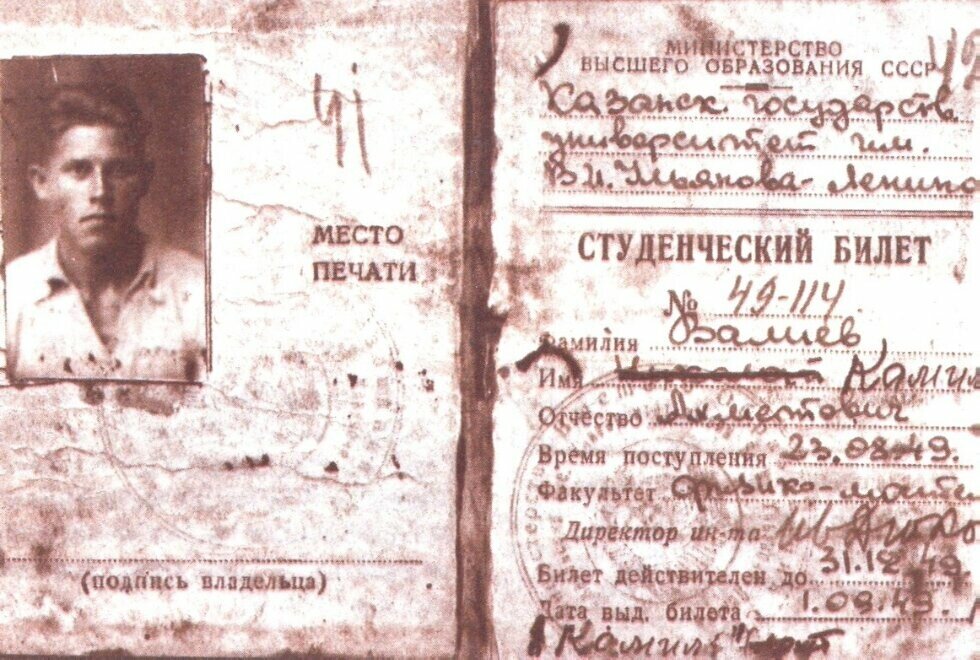 МЕСТО
ПЕЧАТИ
(подпись владельца)
МИНИСТЕРСТВО
ВЫСШЕГО ОБРАЗОВАНИЯ СССР
Казанск. государств.
университет им.
В.И. Ульянова-Ленина
СТУДЕНЧЕСКИЙ БИЛЕТ
№ 49-114
Фамилия Валиев
Имя Камил
Отчество Ахметович
Время поступления 23.08.49.
Факультет физико-мате
Директор ин-та
Билет действителен до 31.12.49.
Дата выд. билета 1.09.49.
Камил